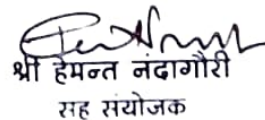 श्री हेमन्त नंदागौरी
सह संयोजक